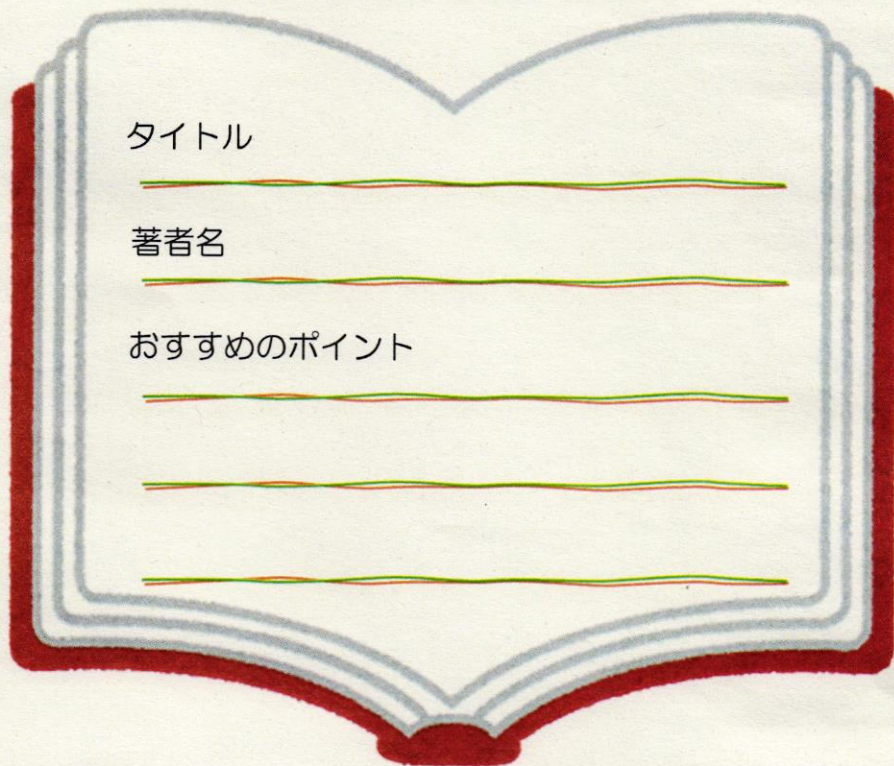 タイトル
著者名
おすすめのポイント